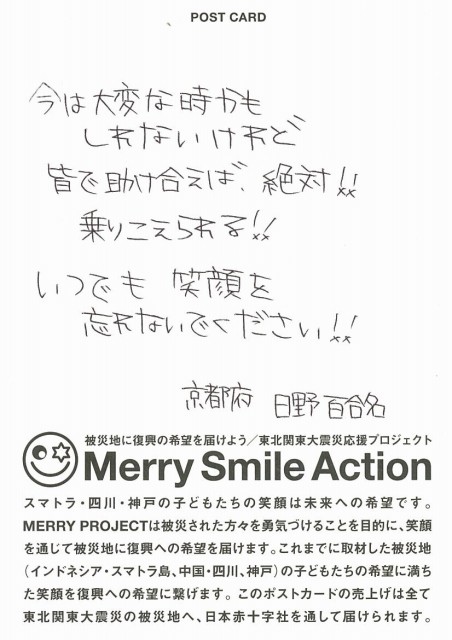 POST CARD
今は大変な時かも
しれないけれど
皆で助け合えば、絶対!!
乗りこえられる!!
いつでも 笑顔を
忘れないでください!!
京都府 日野百合名
被災地に復興の希望を届けよう/東北関東大震災応援プロジェクト
Merry Smile Action
スマトラ・四川・神戸の子どもたちの笑顔は未来への希望です。
MERRY PROJECTは被災された方々を勇気づけることを目的に、笑顔
を通じて被災地に復興への希望を届けます。これまでに取材した被災地
(インドネシア・スマトラ島、中国・四川、神戸)の子どもたちの希望に満ち
た笑顔を復興への希望に繋げます。このポストカードの売上げは全て
東北関東大震災の被災地へ、日本赤十字社を通して届けられます。